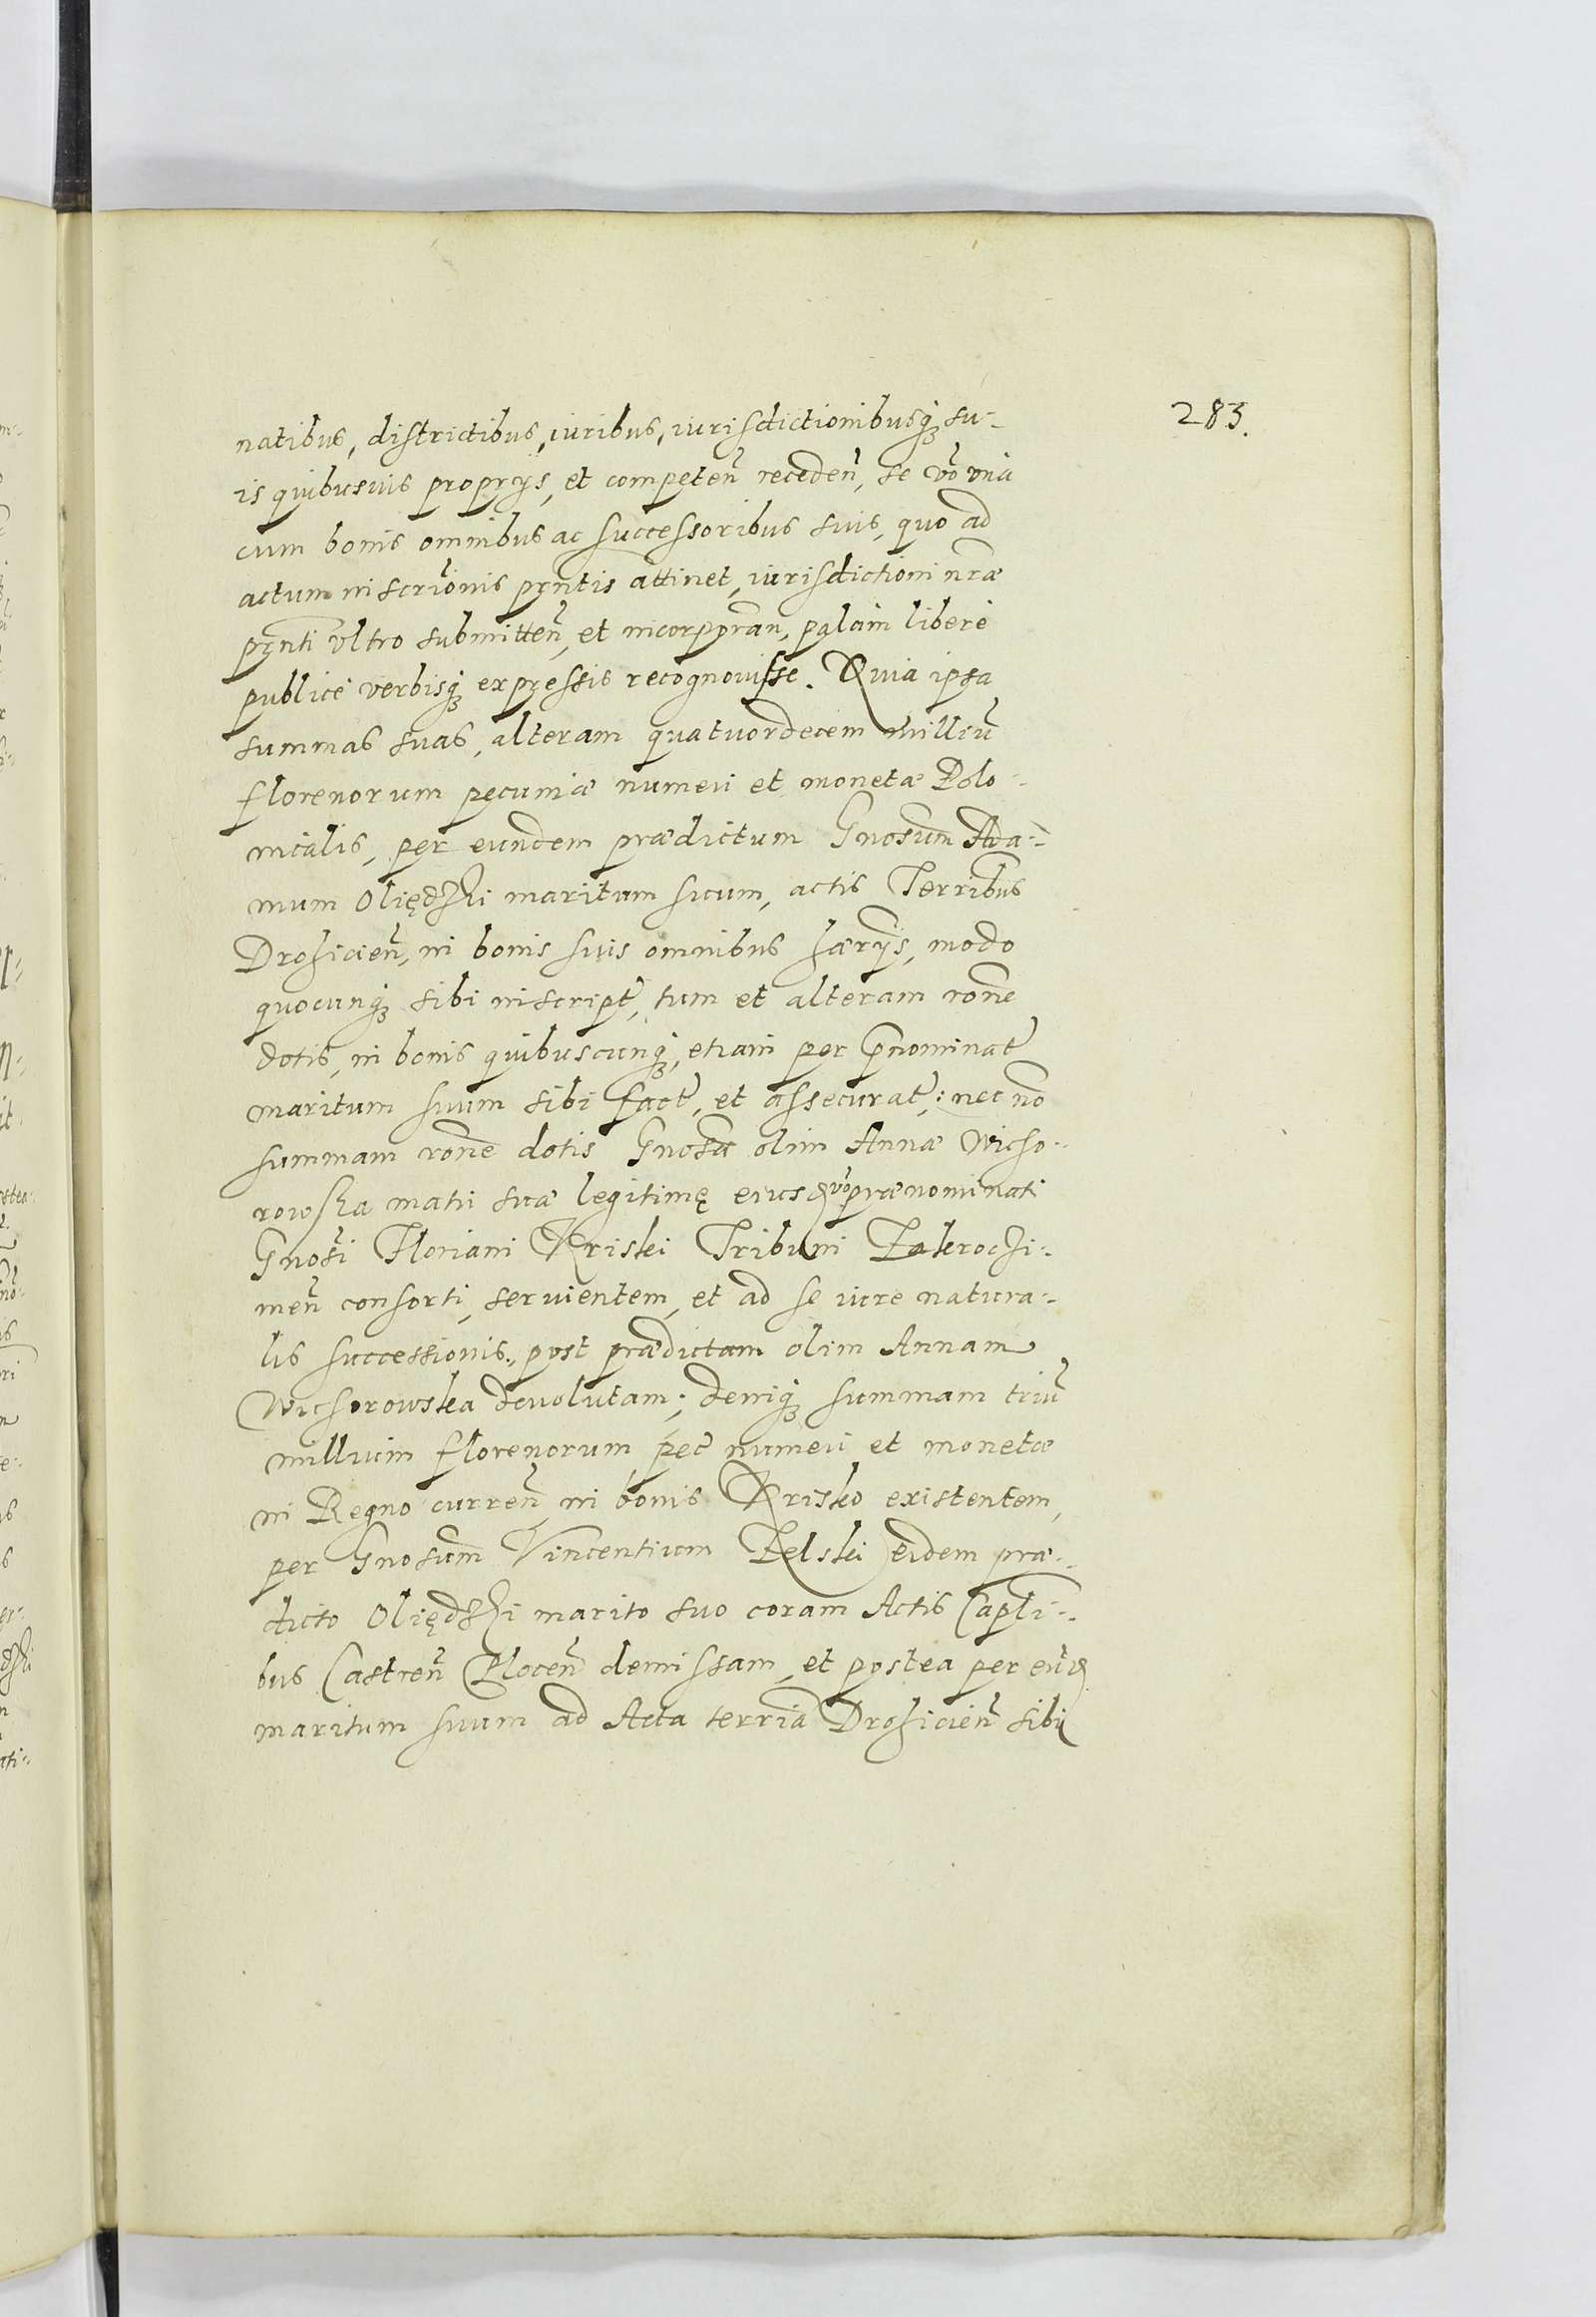 283.
natibus, districtibus, iuribus, iurisdictionibusq́ꝫ su⸗
is quibusuis proprÿs, et competen̄ receden̄, se vō vnà
cum bonis omnibus ac successoribus suis, quo ad
actum inscrīonis pn̄tis attinet, iurisdictioni nr̄æ
pn̄ti vltro submitten̄, et incorporan̄, palàm liberè
publicè verbisq́ꝫ expressis recognouisse. Quia ipsa
summas suas, alteram quatuordecem milliū
florenorum pecuniæ numeri et monetæ Polo⸗
nicalis, per eundem prædictum Gnosum̄ Ada⸗
mum Oliędzki maritum suum, actis Terribus̄
Drohicien̄, in bonis suis omnibus hærÿs, modo
quocunq́ꝫ sibi inscript̄, tum et alteram rōne
dotis, in bonis quibuscunq́ꝫ, etiam per Pn̄ominat̄
maritum suum sibi fact̄, et assecurat̄: nec nō
summam rōne dotis Gnosæ olim Annæ Wicho⸗
rowska matri suæ legitimę eiusdꝫ vō prænominati
Gnosī Floriani Kriski Tribuni Zakroczi⸗
men̄ consorti, seruientem, et ad se iure natura⸗
lis successionis, post prædictam olim Annam
Wichorowska deuolutam; deniq́ꝫ summam triū
millium florenorum pec̄ numeri et monetæ
in Regno curren̄ in bonis Krisko existentem,
per Gnosum̄ Vincentium Zelski eidem præ⸗
dicto Oliędzki marito suo coram Actis Capli⸗
bus Castren̄ Plocen̄ demissam, et postea per eun̄dꝫ
maritum suum ad Acta terria̅ Drohicien̄ sibi